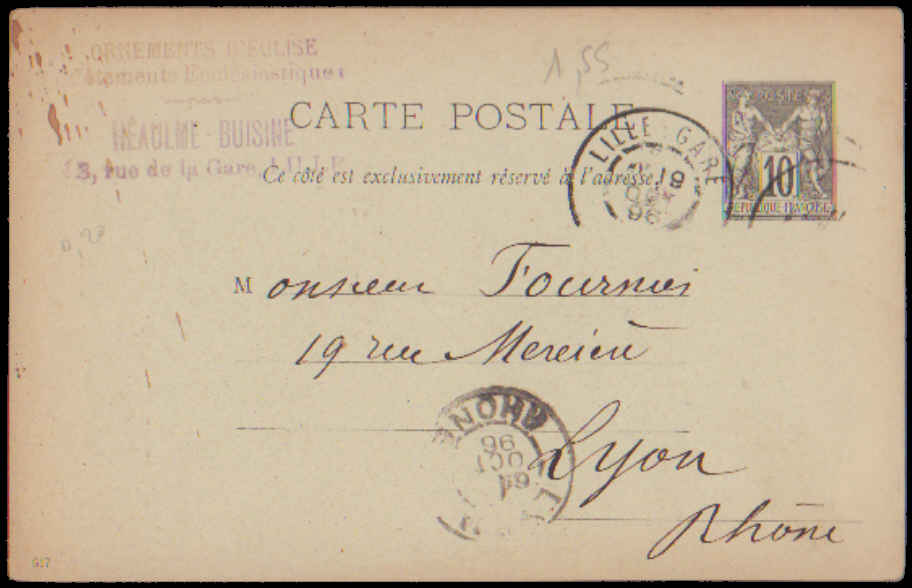 ORNEMENTS D'EGLISE
Vêtements Ecclésiastiques
HÉAULME-BUISINE
13, rue de la Gare, LILLE
1,55
CARTE POSTALE
Ce côté est exclusivement réservé à l'adresse.
LILLE GARE
18
96
POSTE
10
REPUBLIQUE FRANÇAISE
0,27
Monsieur Fournier
19 rue Mercière
Lyon
Rhône
RHONE
96
OCT
19